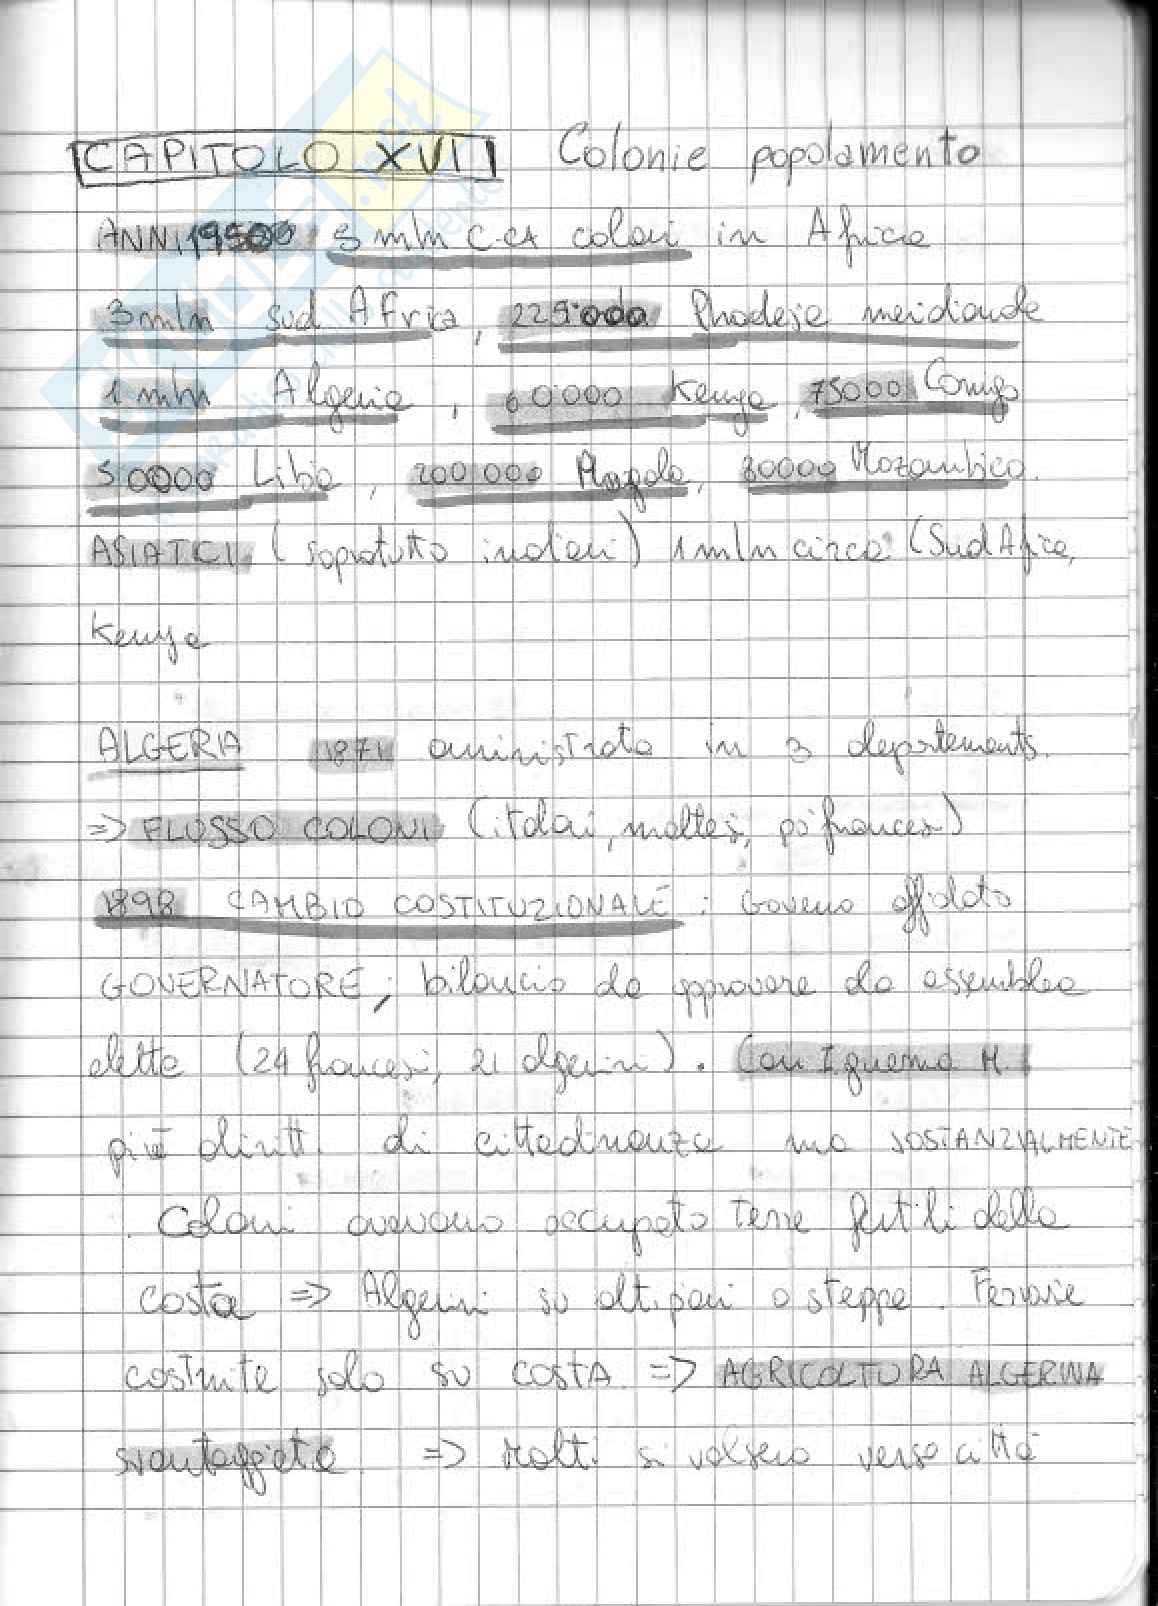 CAPITOLO XVI Colonie popolamento
ANNI 1950 5 mln c.ca coloni in Africa
3 mln sud Africa, 225.000 Rhodesia meridionale
1 mln Algeria, 60000 Kenya, 75000 Congo
50000 Libia, 200 000 Angola, 80000 Mozambico.
ASIATCI (sopratutto indiani) 1 mln circa (Sud Africa,
Kenya
ALGERIA 1871 amministrata in 3 departements.
=> FLUSSO COLONI (italiani, maltesi, pò francesi)
1898 CAMBIO COSTITUZIONALE : Governo affidato
GOVERNATORE; bilancio da approvare da assemblea
eletta (24 francesi, 21 algerini). Con I guerra M.
più diritti di cittadinanza ma SOSTANZIALMENTE
Coloni avevano occupato terre fertili della
costa => Algerini su altipiani o steppe. Ferrovie
costruite solo su COSTA => AGRICOLTURA ALGERINA
svantaggiata => Molti si volsero verso città